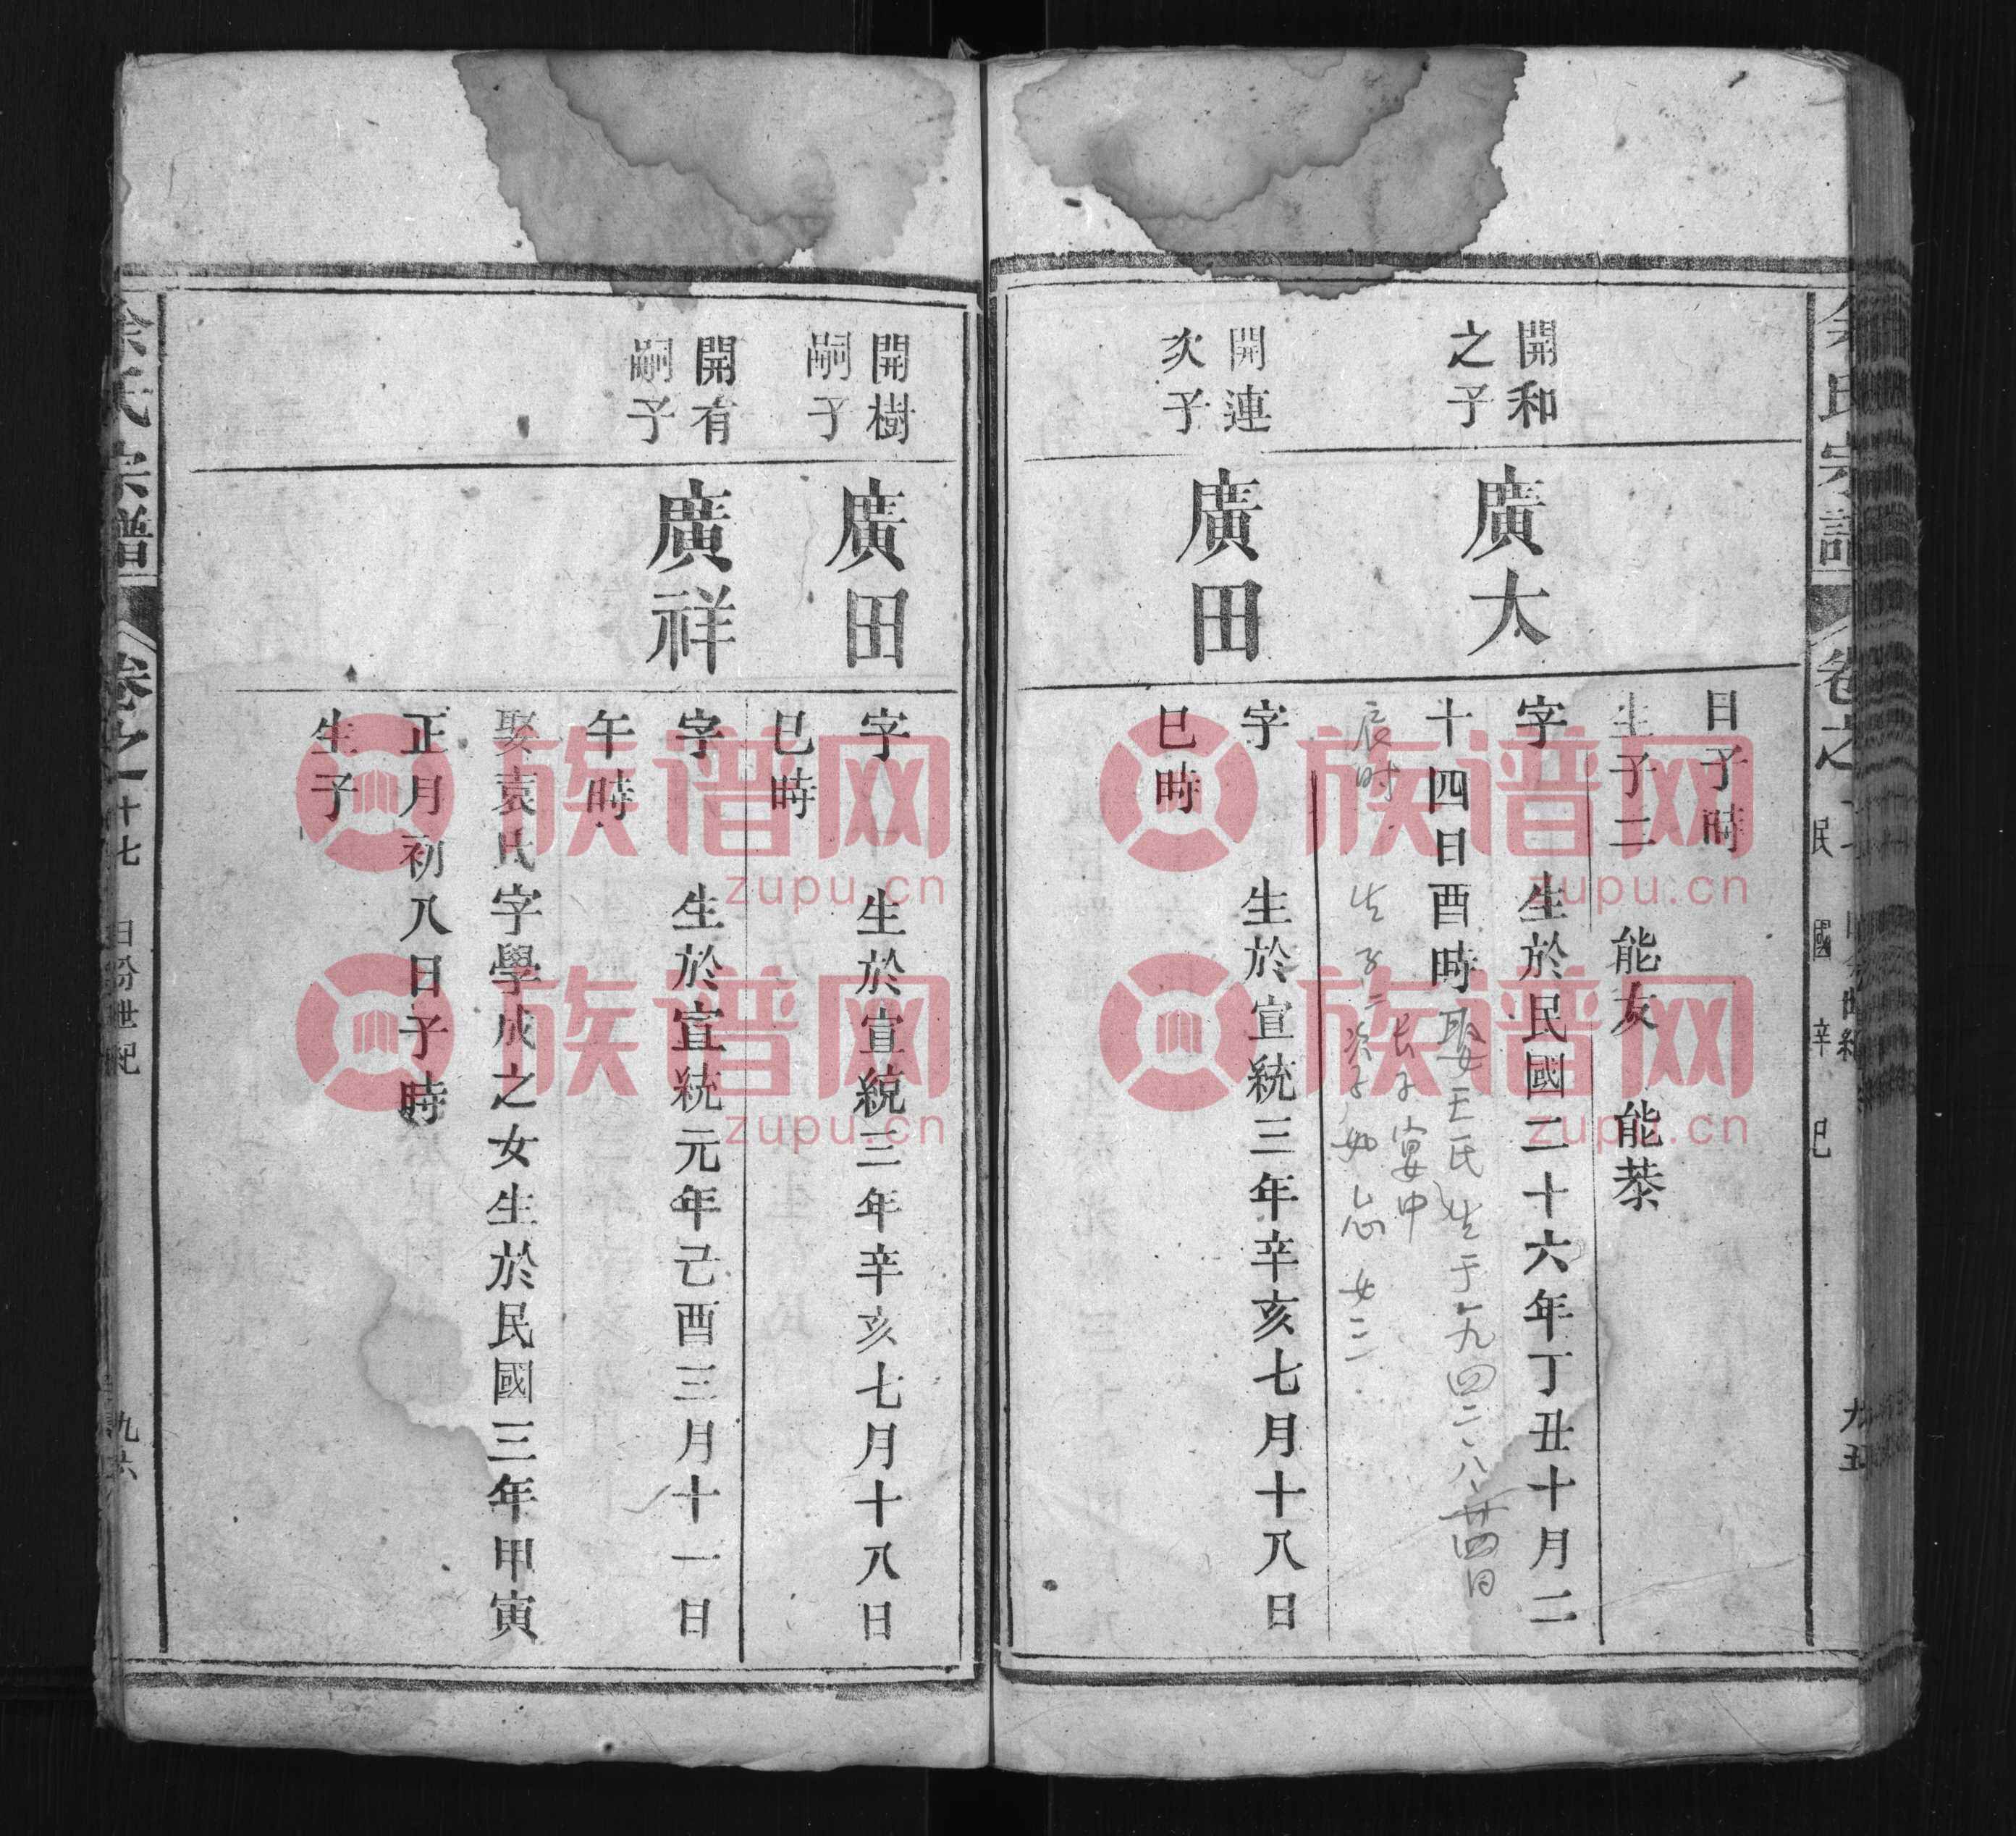 日子時
生子二　能友　能恭
開和
之子
廣大
字　生於民國二十六年丁丑十月二
十四日酉時
娶王氏生于一九四二、八、廿四日
辰时　生子二　长子宴中
次子如忠　女二
開連
次子
廣田
字　生於宣統三年辛亥七月十八日
巳時
民國辛巳
開樹
嗣子
廣田
字　生於宣統三年辛亥七月十八日
巳時
開有
嗣子
廣祥
字　生於宣統元年己酉三月十一日
午時
娶袁氏字學成之女生於民國三年甲寅
正月初八日子時
生子
余氏宗譜
卷之二十七
九六
族谱网
zupu.cn
族谱网
zupu.cn
族谱网
zupu.cn
族谱网
zupu.cn